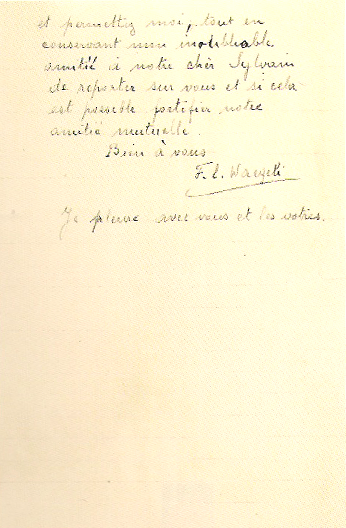 et permettez moi, tout en
conservant mon inoubliable
amitié à notre cher Sylvain
de reporter sur vous et si cela
est possible fortifier notre
amitié mutuelle.
Bien à vous
F. E.
Je pleure avec vous et les votres.